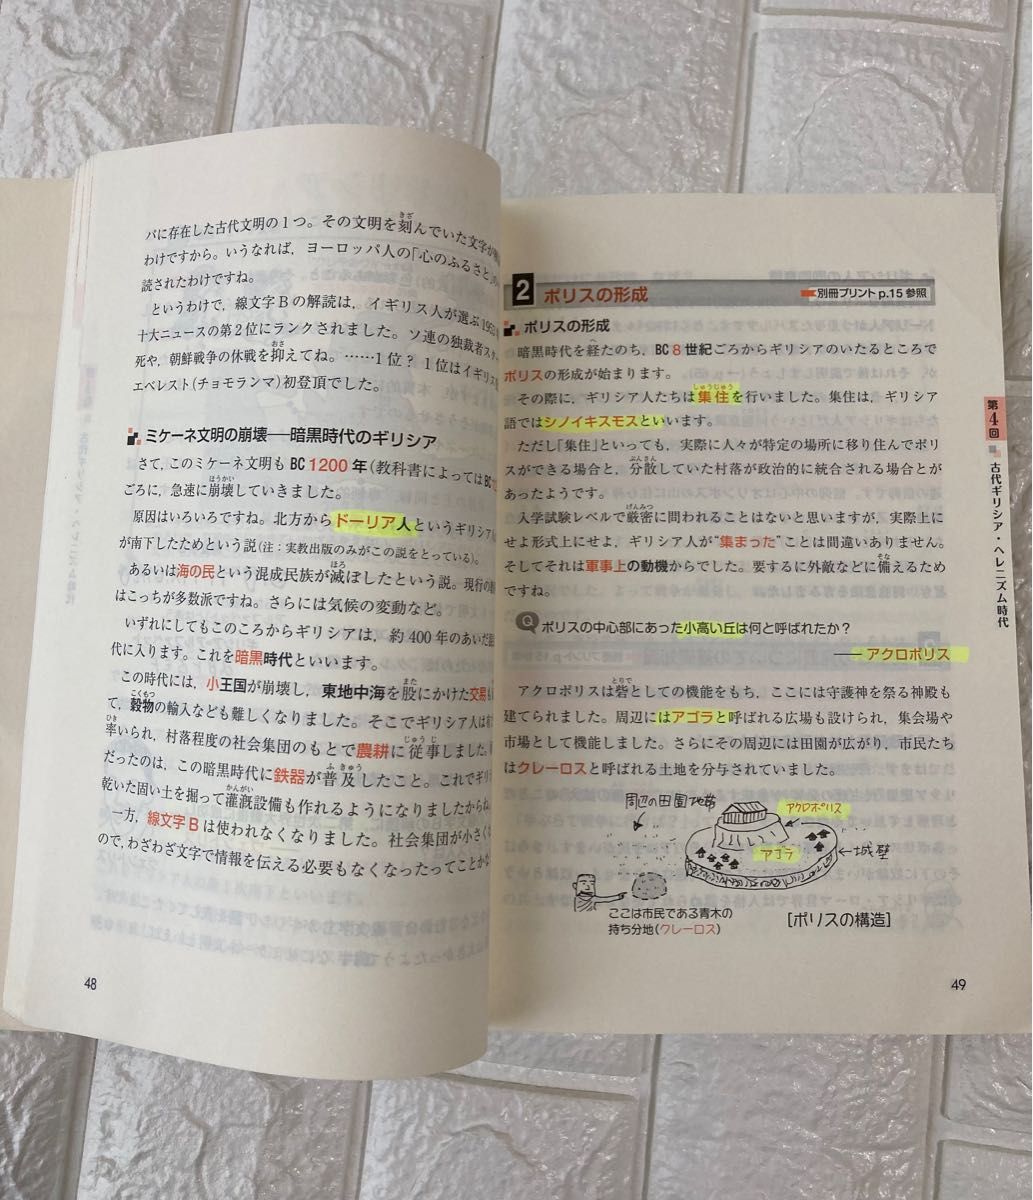 パに存在した古代文明の1つ。その文明を刻んでいた文字が
わけですから。いうなれば，ヨーロッパ人の「心のふるさと」
読されたわけですね。
というわけで，線文字Bの解読は，イギリス人が選ぶ195
十大ニュースの第2位にランクされました。ソ連の独裁者スター
死や，朝鮮戦争の休戦を抑えてね。……1位？ 1位はイギリス
エベレスト（チョモランマ）初登頂でした。
ミケーネ文明の崩壊――暗黒時代のギリシア
さて，このミケーネ文明も BC 1200 年（教科書によってはBC
ごろに，急速に崩壊していきました。
原因はいろいろですね。北方からドーリア人というギリシア
が南下したためという説（注：実教出版のみがこの説をとっている）。
あるいは海の民という混成民族が滅ぼしたという説。現行の
はこっちが多数派ですね。さらには気候の変動など。
いずれにしてもこのころからギリシアは，約400年のあいだ
代に入ります。これを暗黒時代といいます。
この時代には，小王国が崩壊し，東地中海を股にかけた交易
て，穀物の輸入なども難しくなりました。そこでギリシア人は
率いられ，村落程度の社会集団のもとで農耕に従事しました。
だったのは，この暗黒時代に鉄器が普及したこと。これでギリ
乾いた固い土を掘って灌漑設備も作れるようになりましたからね。
一方，線文字Bは使われなくなりました。社会集団が小さく
ので，わざわざ文字で情報を伝える必要もなくなったってことか
48
2 ポリスの形成 別冊プリント p.15 参照
ポリスの形成
暗黒時代を経たのち，BC 8 世紀ごろからギリシアのいたるところで
ポリスの形成が始まります。
その際に，ギリシア人たちは集住を行いました。集住は，ギリシア
語ではシノイキスモスといいます。
ただし「集住」といっても，実際に人々が特定の場所に移り住んでポリ
スができる場合と，分散していた村落が政治的に統合される場合とが
あったようです。
入学試験レベルで厳密に問われることはないと思いますが，実際上に
せよ形式上にせよ，ギリシア人が“集まった”ことは間違いありません。
そしてそれは軍事上の動機からでした。要するに外敵などに備えるため
ですね。
Q ポリスの中心部にあった小高い丘は何と呼ばれたか？
――アクロポリス
アクロポリスは砦としての機能をもち，ここには守護神を祭る神殿も
建てられました。周辺にはアゴラと呼ばれる広場も設けられ，集会場や
市場として機能しました。さらにその周辺には田園が広がり，市民たち
はクレーロスと呼ばれる土地を分与されていました。
周辺の田園地帯
アクロポリス
アゴラ
←城壁
ここは市民である青木の
持ち分地（クレーロス）
［ポリスの構造］
49
第4回
古代ギリシア・ヘレニズム時代